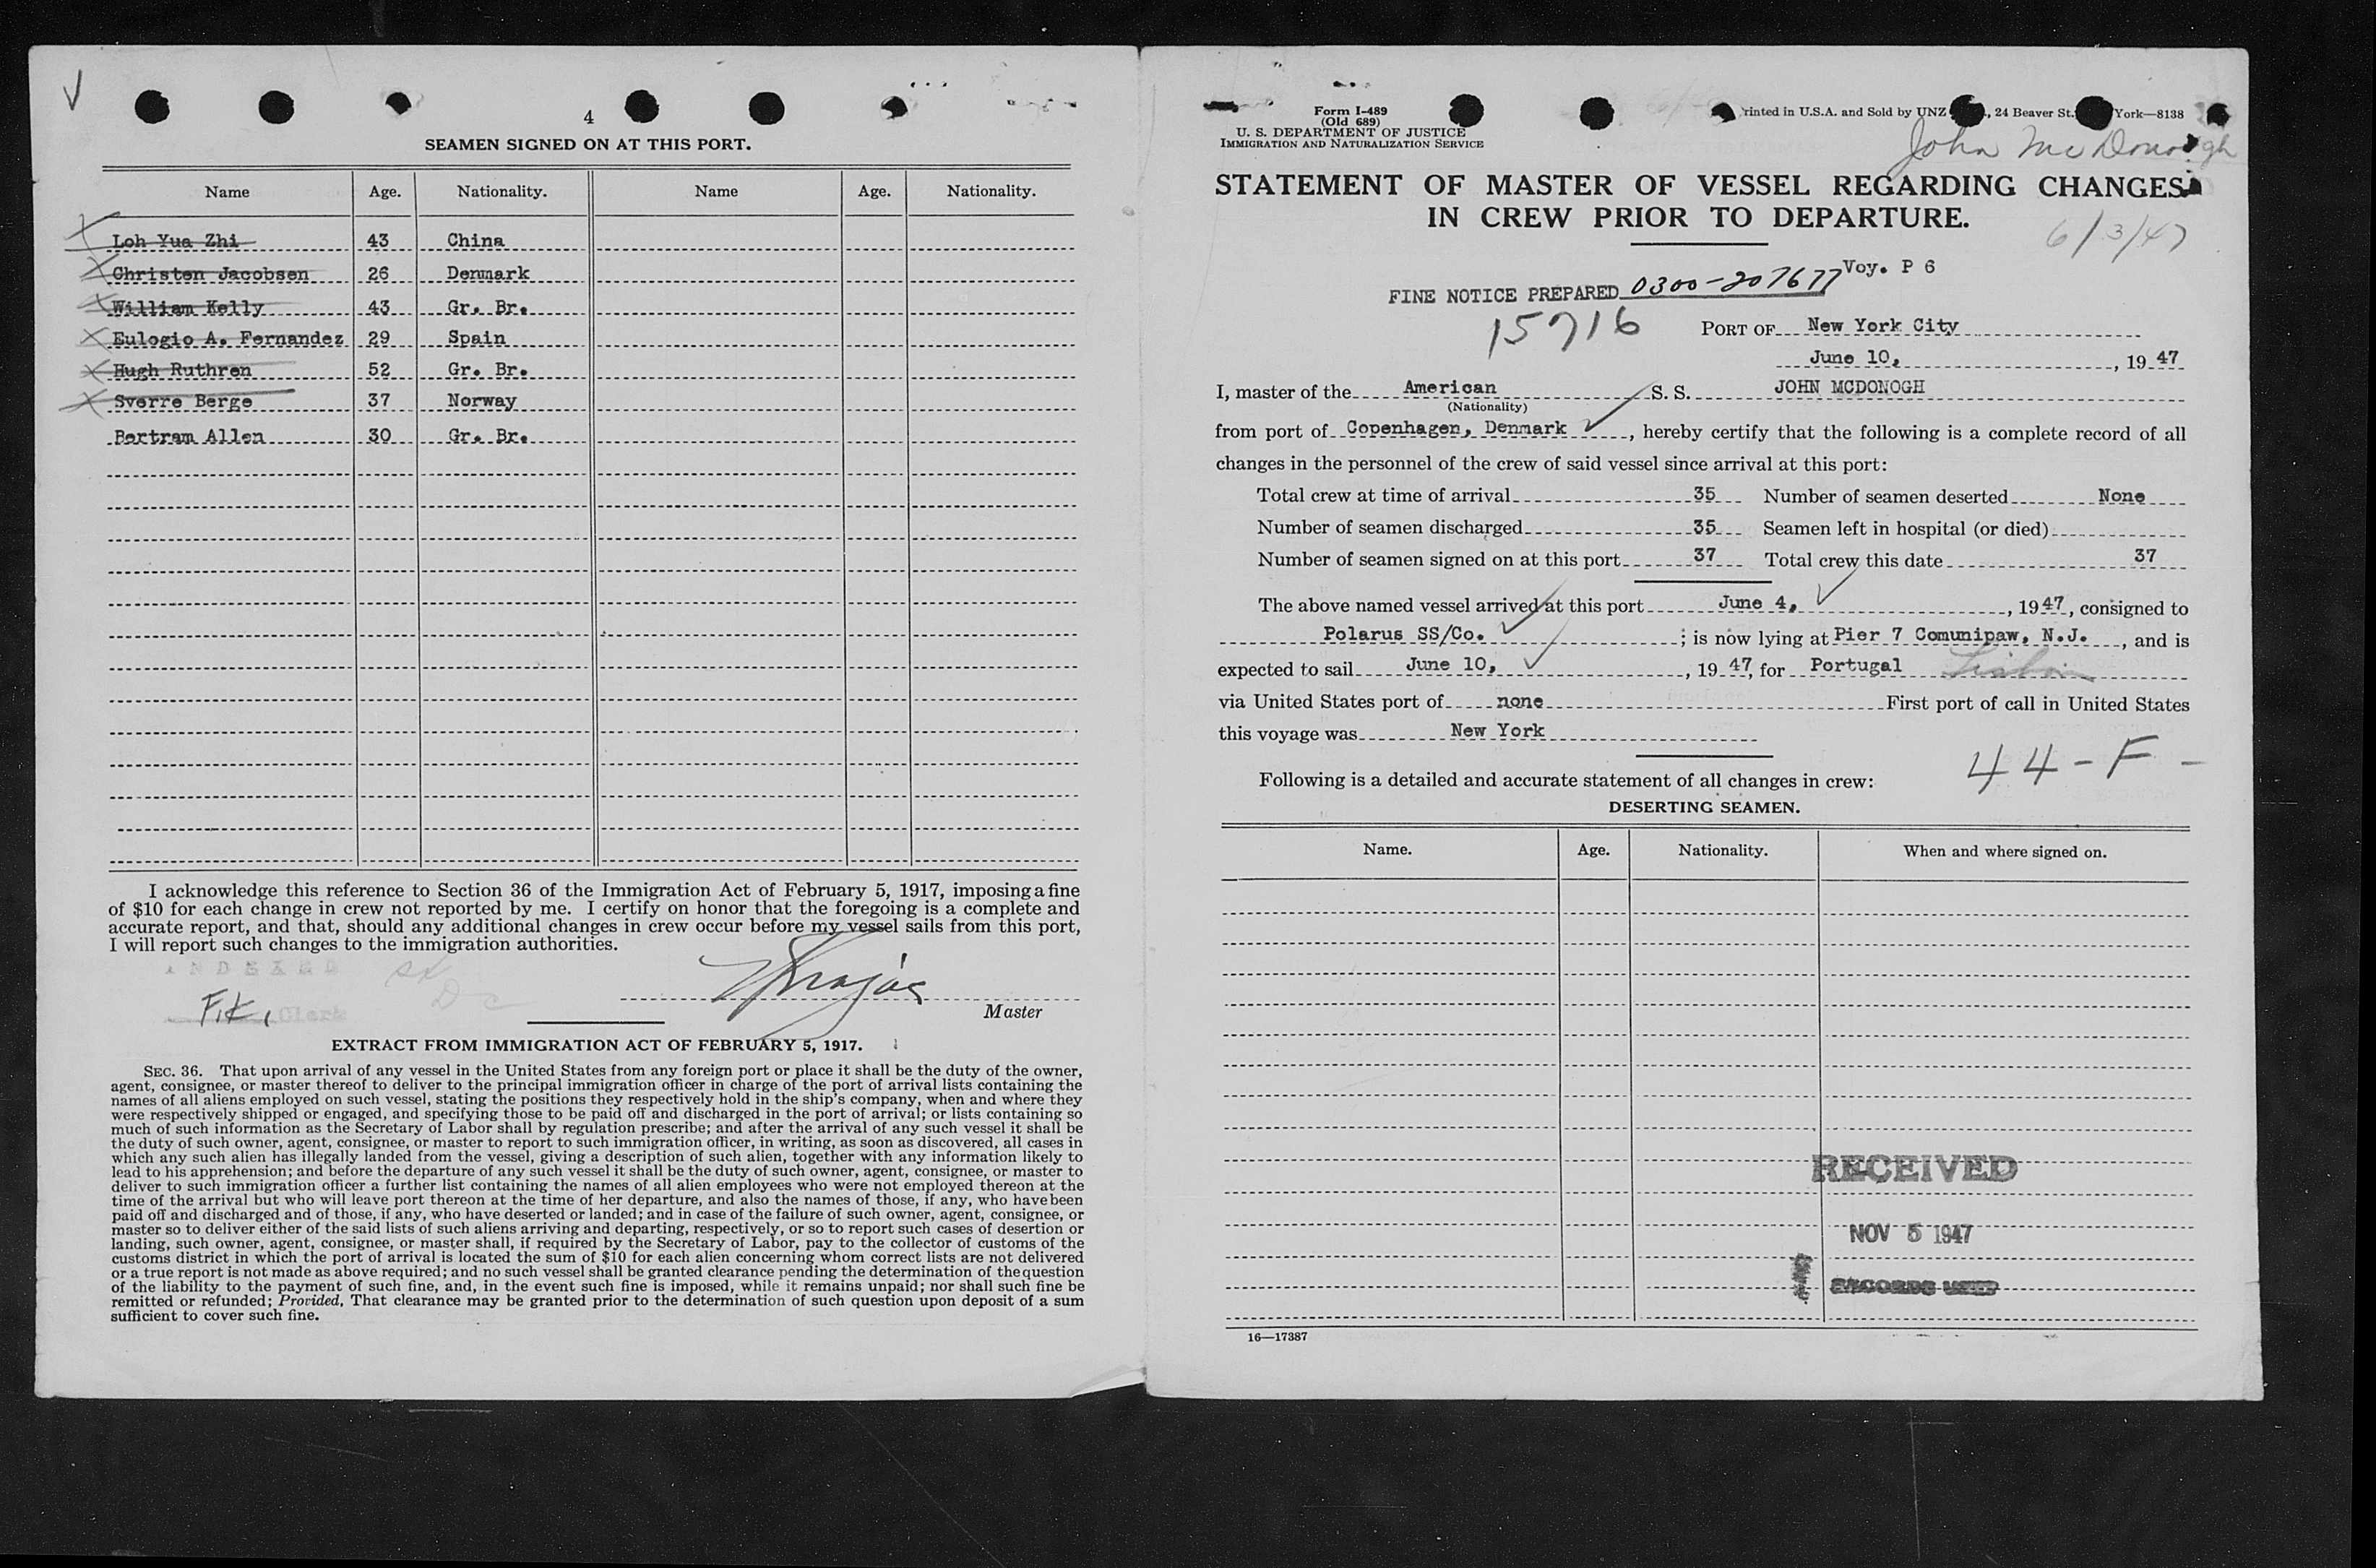 4
SEAMEN SIGNED ON AT THIS PORT.
Name Age. Nationality. Name Age. Nationality.
Loh Yua Zhi 43 China
Christen Jacobsen 26 Denmark
William Kelly 43 Gr. Br.
Eulogio A. Fernandez 29 Spain
Hugh Ruthren 52 Gr. Br.
Sverre Berge 37 Norway
Bertram Allen 30 Gr. Br.
I acknowledge this reference to Section 36 of the Immigration Act of February 5, 1917, imposing a fine
of $10 for each change in crew not reported by me. I certify on honor that the foregoing is a complete and
accurate report, and that, should any additional changes in crew occur before my vessel sails from this port,
I will report such changes to the immigration authorities.
INDEXED
F.K. Clerk
Master
EXTRACT FROM IMMIGRATION ACT OF FEBRUARY 5, 1917.
SEC. 36. That upon arrival of any vessel in the United States from any foreign port or place it shall be the duty of the owner,
agent, consignee, or master thereof to deliver to the principal immigration officer in charge of the port of arrival lists containing the
names of all aliens employed on such vessel, stating the positions they respectively hold in the ship's company, when and where they
were respectively shipped or engaged, and specifying those to be paid off and discharged in the port of arrival; or lists containing so
much of such information as the Secretary of Labor shall by regulation prescribe; and after the arrival of any such vessel it shall be
the duty of such owner, agent, consignee, or master to report to such immigration officer, in writing, as soon as discovered, all cases in
which any such alien has illegally landed from the vessel, giving a description of such alien, together with any information likely to
lead to his apprehension; and before the departure of any such vessel it shall be the duty of such owner, agent, consignee, or master to
deliver to such immigration officer a further list containing the names of all alien employees who were not employed thereon at the
time of the arrival but who will leave port thereon at the time of her departure, and also the names of those, if any, who have been
paid off and discharged and of those, if any, who have deserted or landed; and in case of the failure of such owner, agent, consignee, or
master so to deliver either of the said lists of such aliens arriving and departing, respectively, or so to report such cases of desertion or
landing, such owner, agent, consignee, or master shall, if required by the Secretary of Labor, pay to the collector of customs of the
customs district in which the port of arrival is located the sum of $10 for each alien concerning whom correct lists are not delivered
or a true report is not made as above required; and no such vessel shall be granted clearance pending the determination of the question
of the liability to the payment of such fine, and, in the event such fine is imposed, while it remains unpaid; nor shall such fine be
remitted or refunded; Provided, That clearance may be granted prior to the determination of such question upon deposit of a sum
sufficient to cover such fine.
Form I-489
(Old 689)
U. S. DEPARTMENT OF JUSTICE
IMMIGRATION AND NATURALIZATION SERVICE
rinted in U.S.A. and Sold by UNZ , 24 Beaver St. York—8138
John McDonough
STATEMENT OF MASTER OF VESSEL REGARDING CHANGES
IN CREW PRIOR TO DEPARTURE.
6/3/47
Voy. P 6
FINE NOTICE PREPARED 0300-207677
15716
PORT OF New York City
June 10, , 19 47
I, master of the American S. S. JOHN MCDONOGH
(Nationality)
from port of Copenhagen, Denmark , hereby certify that the following is a complete record of all
changes in the personnel of the crew of said vessel since arrival at this port:
Total crew at time of arrival 35 Number of seamen deserted None
Number of seamen discharged 35 Seamen left in hospital (or died)
Number of seamen signed on at this port 37 Total crew this date 37
The above named vessel arrived at this port June 4, , 19 47, consigned to
Polarus SS/Co. ; is now lying at Pier 7 Comunipaw, N.J. , and is
expected to sail June 10, , 19 47, for Portugal Lisbon
via United States port of none First port of call in United States
this voyage was New York
44-F-
Following is a detailed and accurate statement of all changes in crew:
DESERTING SEAMEN.
Name. Age. Nationality. When and where signed on.
RECEIVED
NOV 5 1947
RECORDS UNIT
16—17387